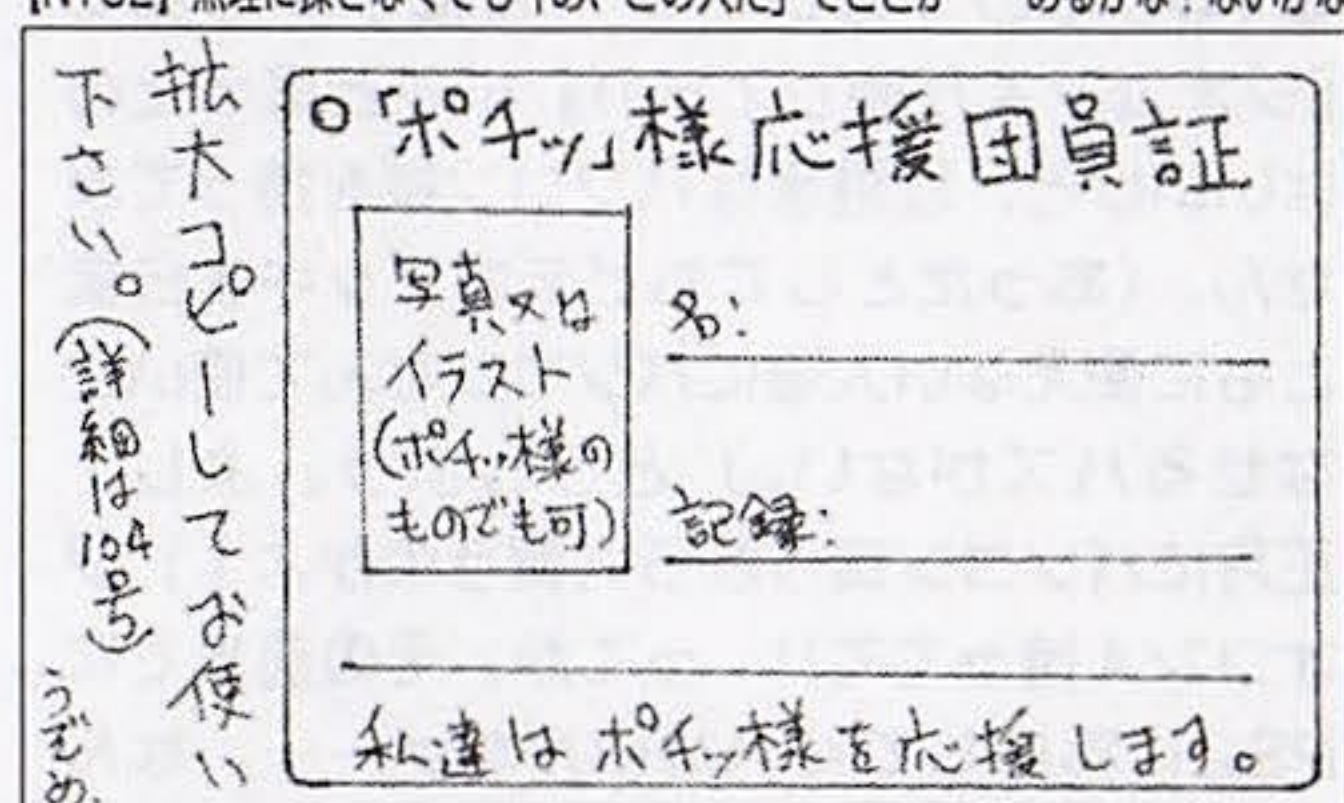 拡大コピーしてお使い
下さい。(詳細は104号)
○「ポチッ」様応援団員証
写真又は
イラスト
(ポチッ様の
ものでも可)
名:
記録:
私達はポチッ様を応援します。